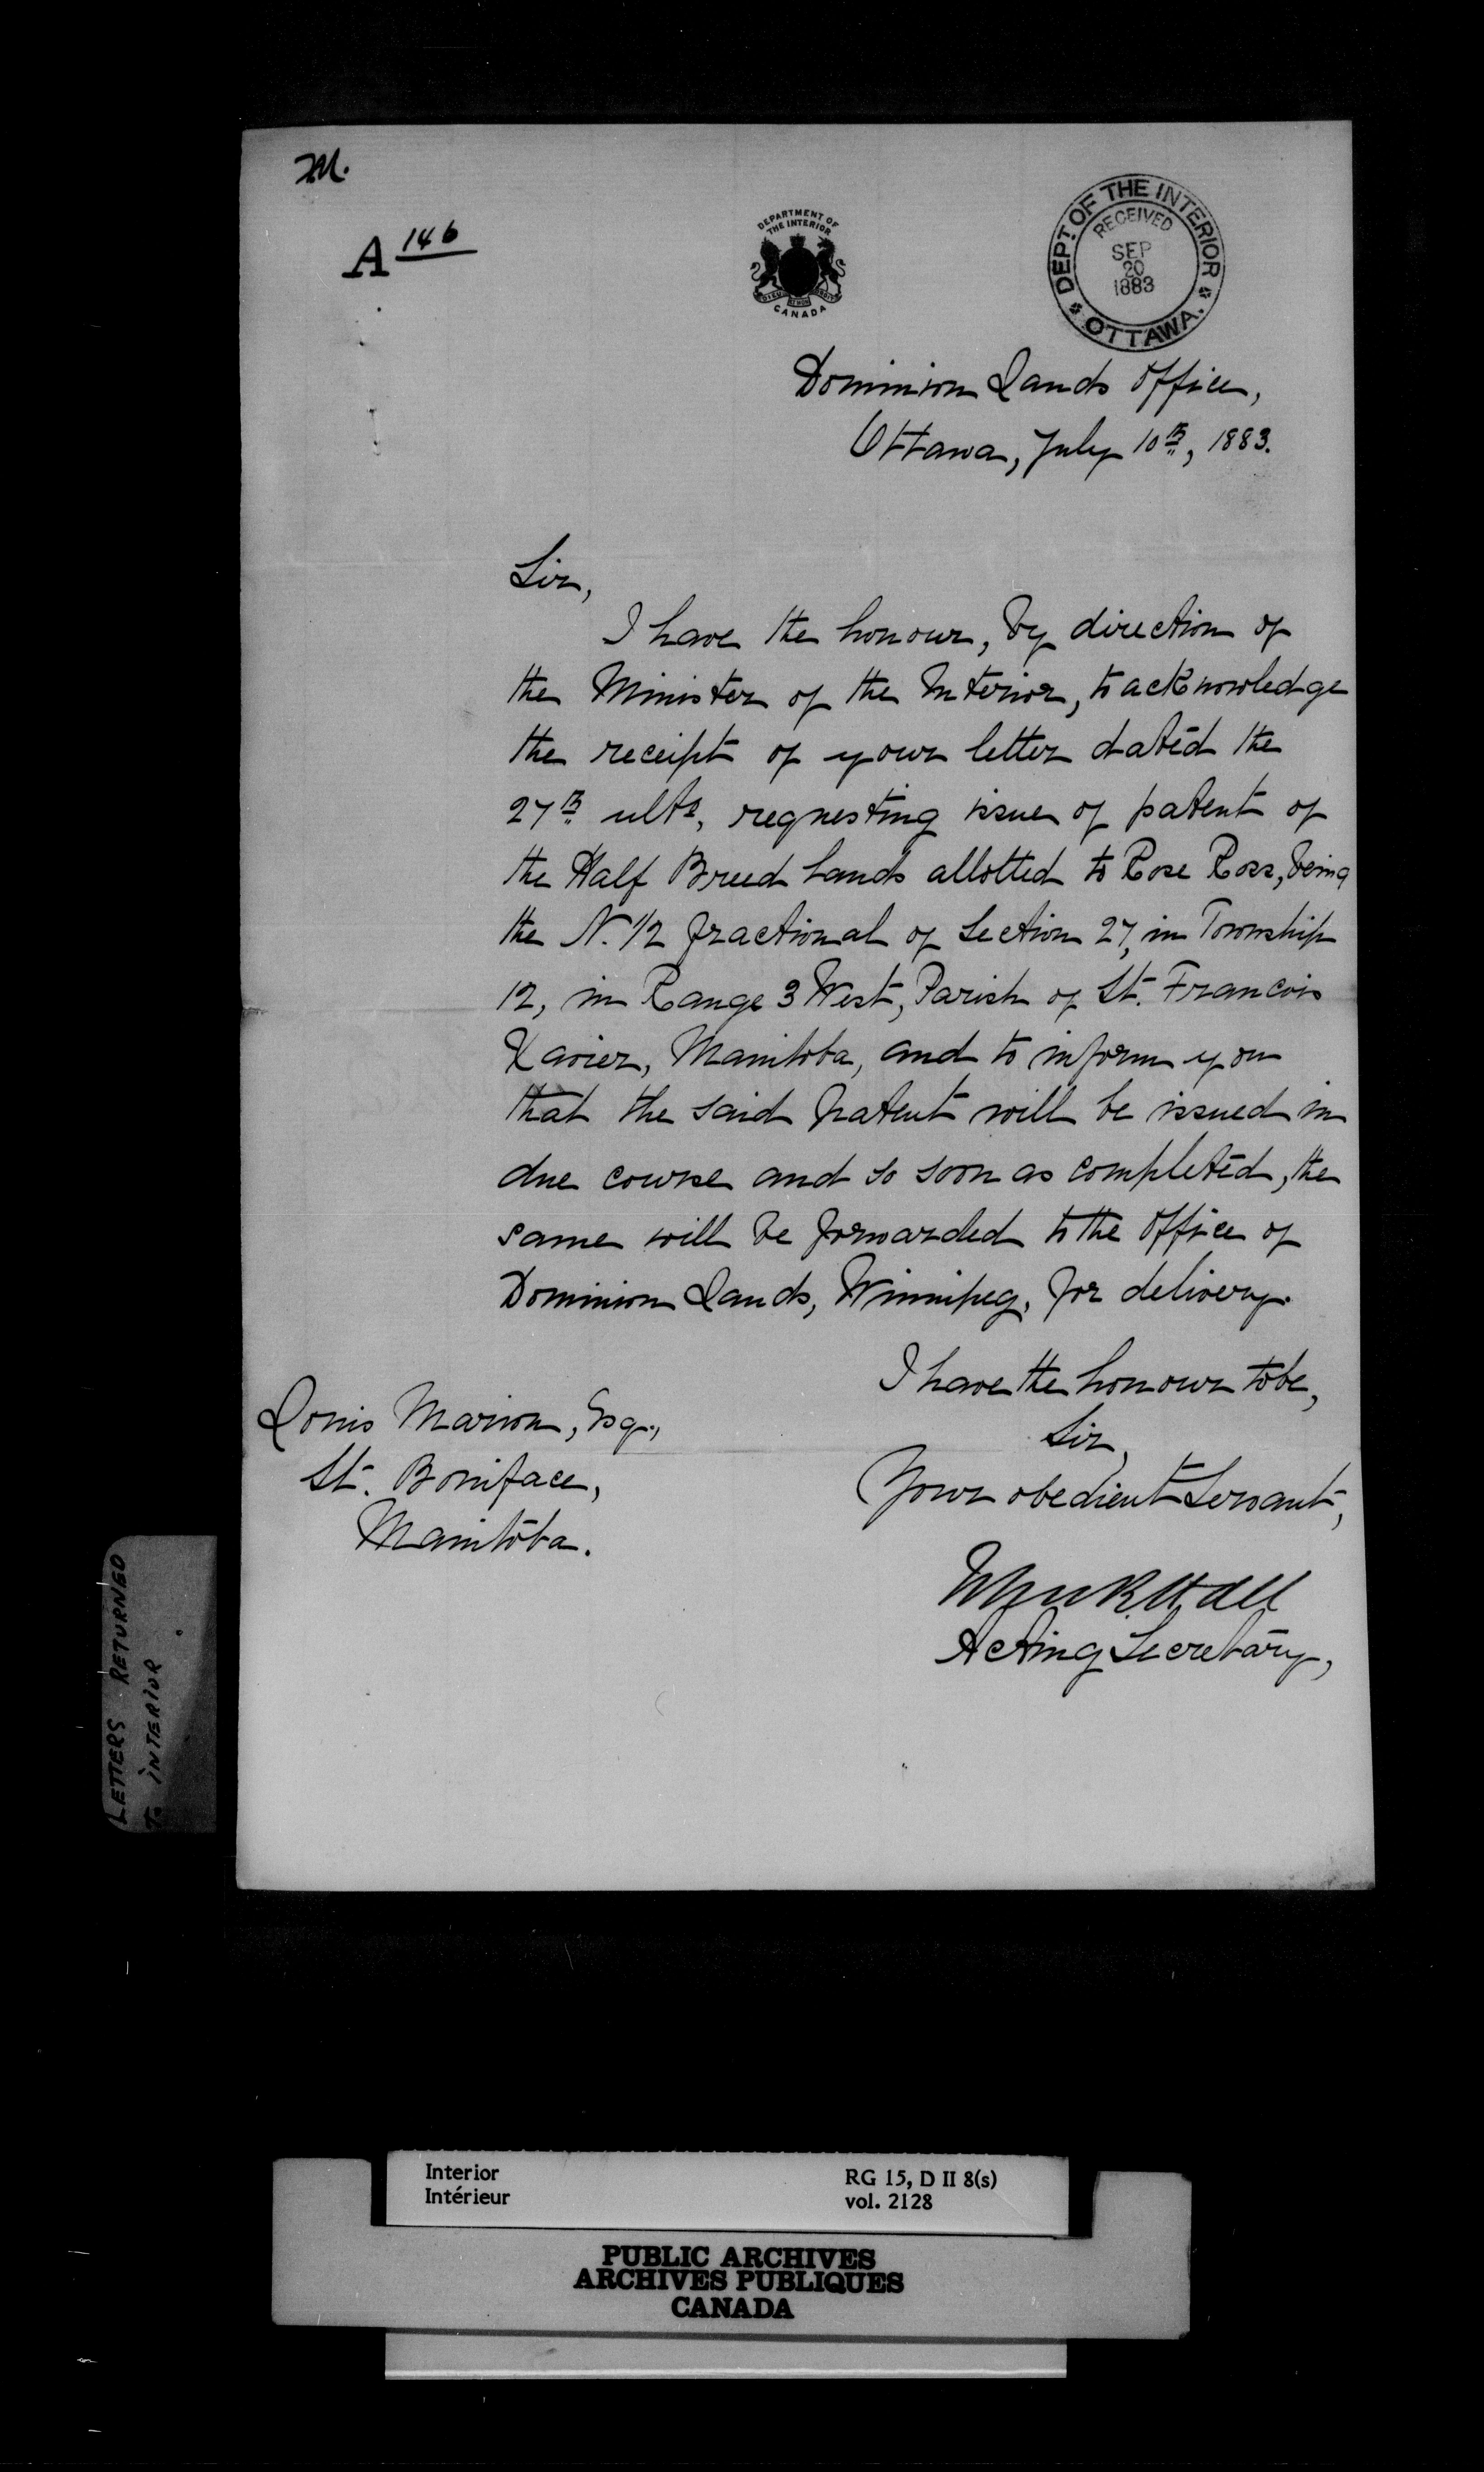 M.
A 146
DEPARTMENT OF
THE INTERIOR
CANADA
DEPT. OF THE INTERIOR
RECEIVED
SEP
20
1883
OTTAWA.
Dominion Lands Office,
Ottawa, July 10th, 1883.
Sir,
I have the honour, by direction of
the Minister of the Interior, to acknowledge
the receipt of your letter dated the
27th ulto, requesting issue of patent of
the Half Breed Lands allotted to Rose Ross, being
the N. 1/2 fractional of Section 27, in Township
12, in Range 3 West, Parish of St. Francois
Xavier, Manitoba, and to inform you
that the said patent will be issued in
due course and so soon as completed, the
same will be forwarded to the Office of
Dominion Lands, Winnipeg, for delivery.
I have the honour to be,
Sir,
Your obedient Servant,
Acting Secretary,
Louis Marion, Esq.,
St. Boniface,
Manitoba.
LETTERS RETURNED
TO INTERIOR
Interior
Intérieur
RG 15, D II 8(s)
vol. 2128
PUBLIC ARCHIVES
ARCHIVES PUBLIQUES
CANADA